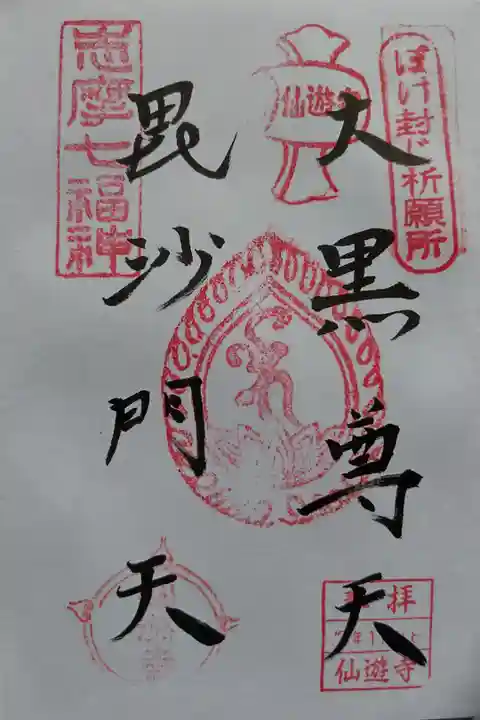 ぼけ封じ祈願所
仙遊寺
大黒尊天
奉拝
仙遊寺
志摩七福神
毘沙門天